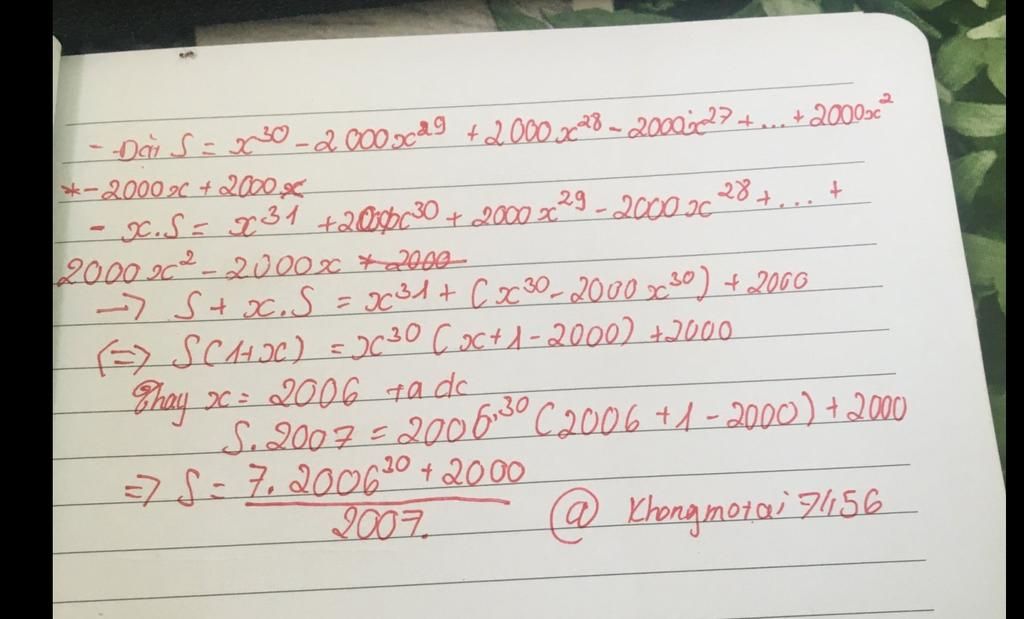 - Đặt S = x^30 - 2000x^29 + 2000x^28 - 2000x^27 + ... + 2000x^2
- 2000x + 2000
- x.S = x^31 + 2000x^30 + 2000x^29 - 2000x^28 + ... +
2000x^2 - 2000x + 2000
→ S + x.S = x^31 + (x^30 - 2000x^30) + 2000
(=> S(1+x) = x^30 (x+1-2000) + 2000
Thay x = 2006 ta dc
S.2007 = 2006^30 (2006 + 1 - 2000) + 2000
=> S = 7.2006^30 + 2000
2007.
@ Khongmotai 7456